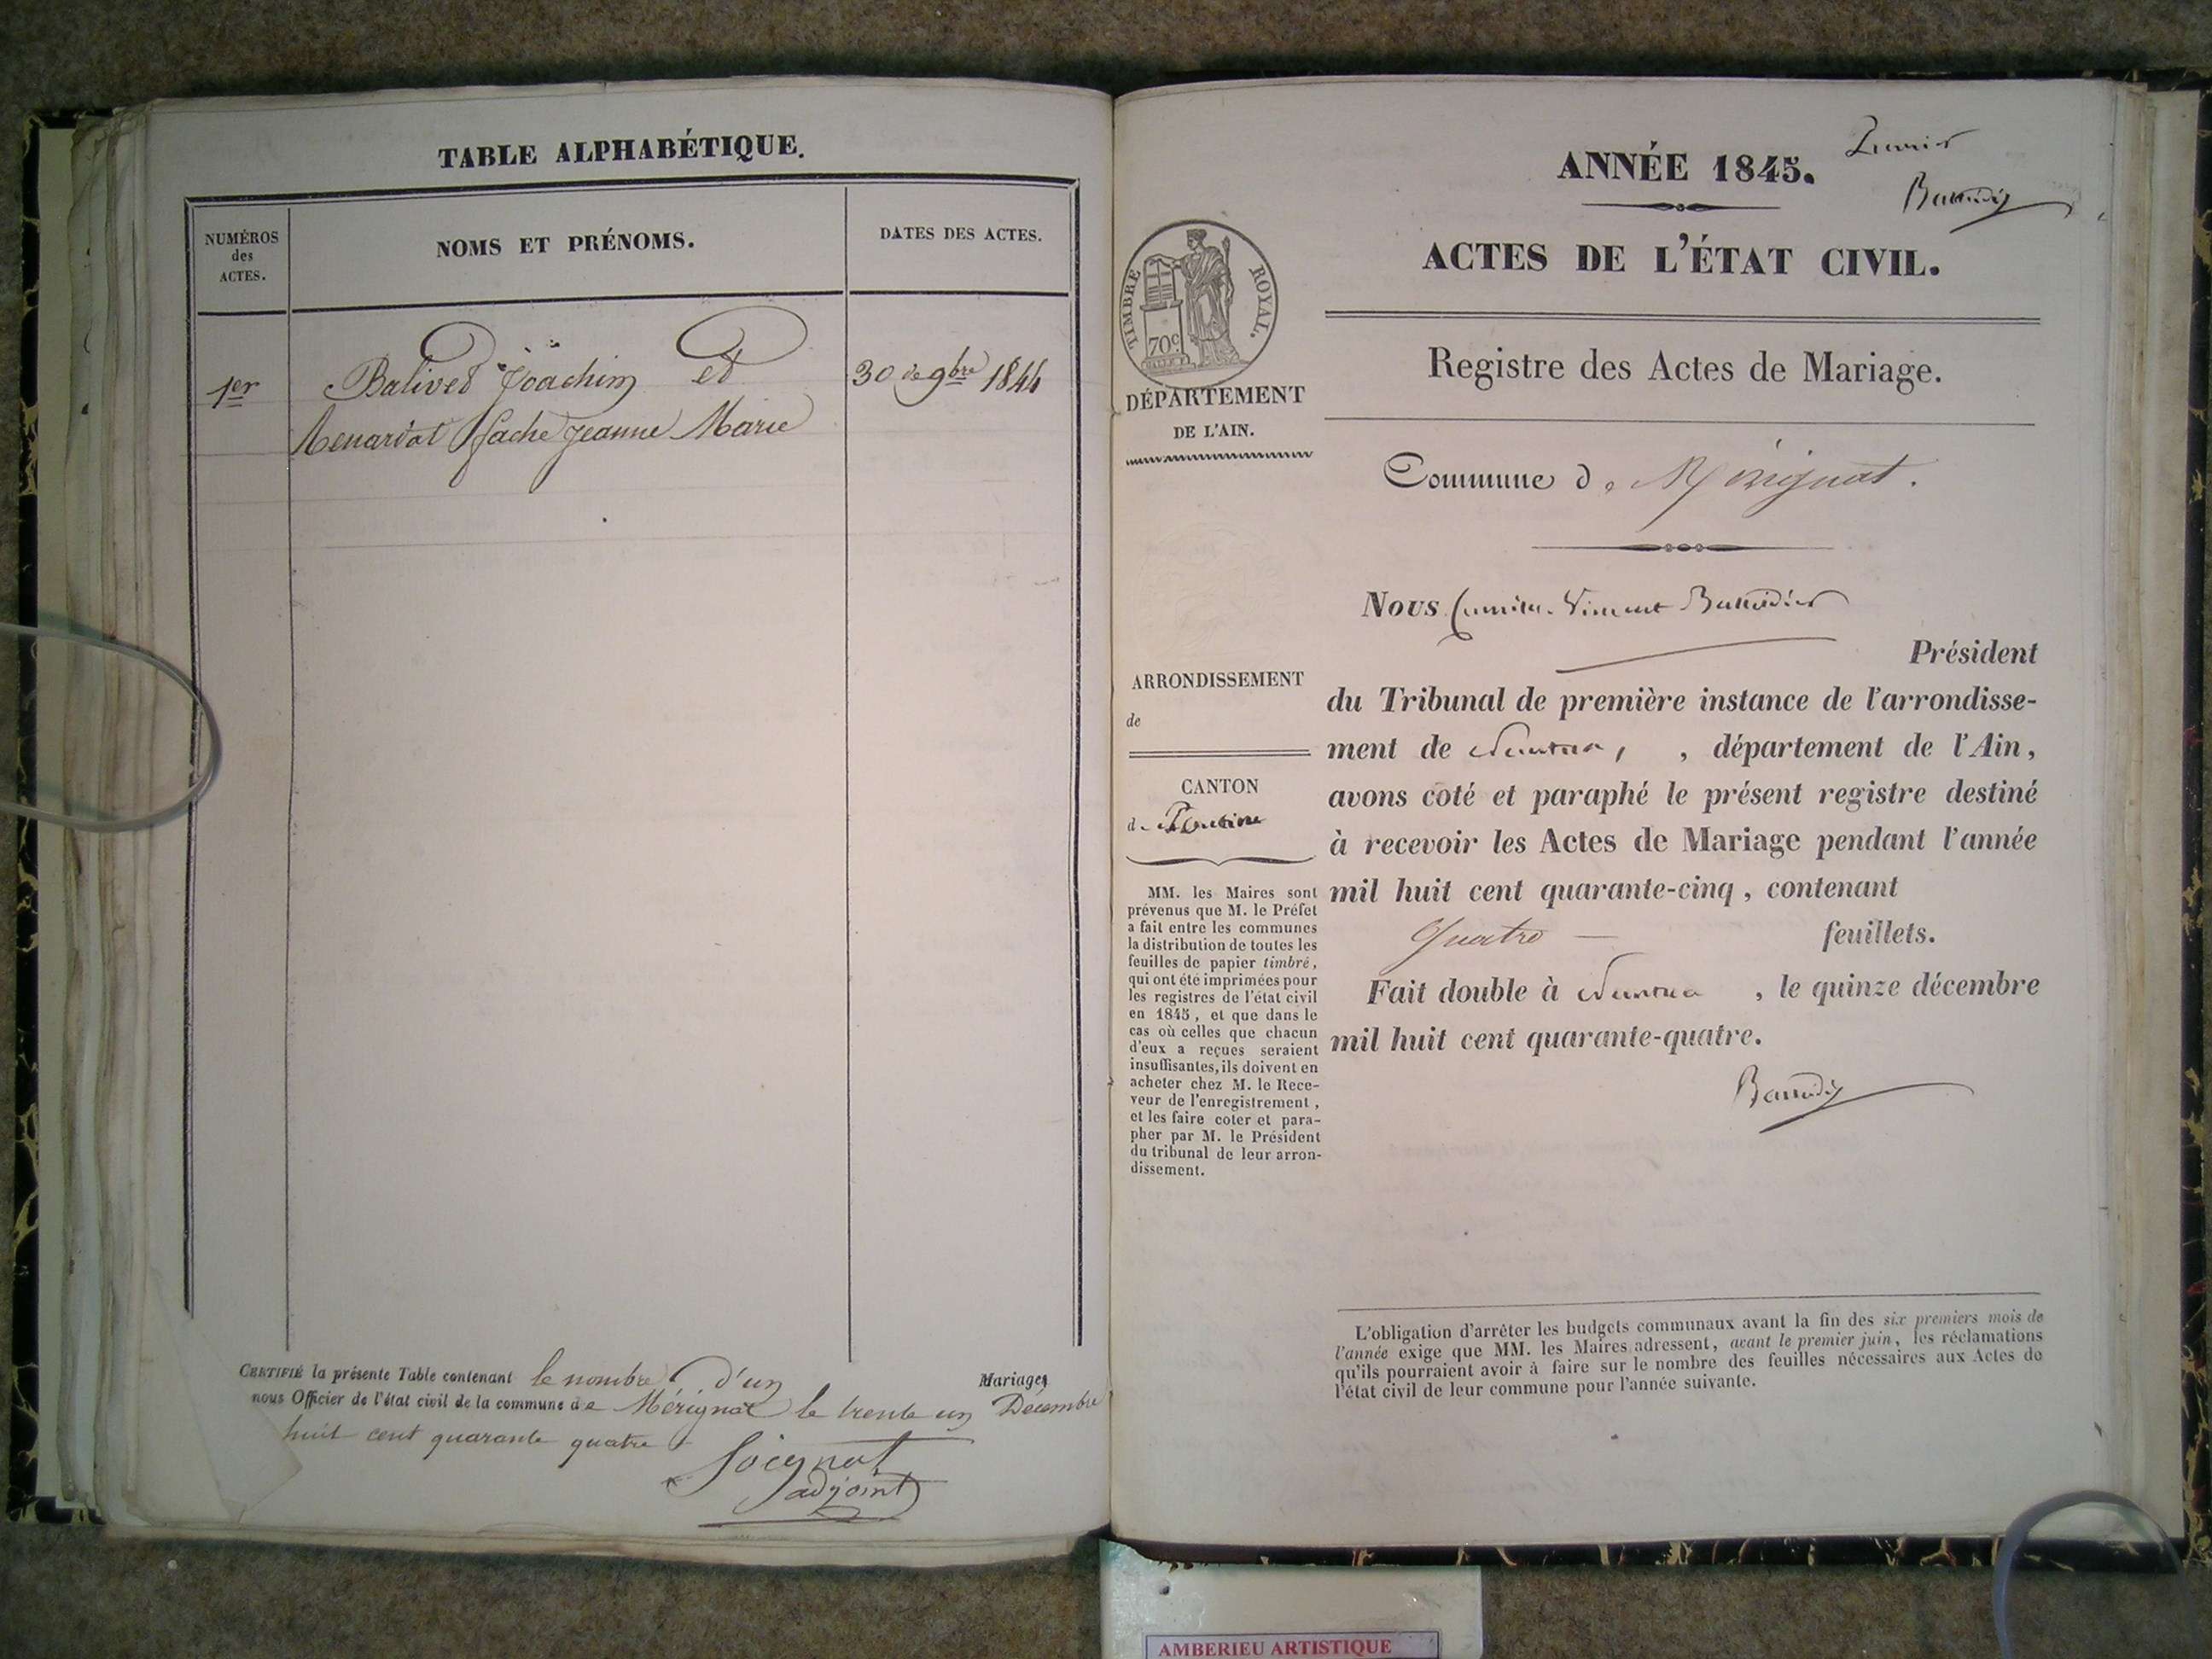 TABLE ALPHABÉTIQUE.
NUMÉROS
des
ACTES.
NOMS ET PRÉNOMS.
DATES DES ACTES.
1er
Balivet Joachim et
30 de 9bre 1844
Jeanne Marie
CERTIFIÉ la présente Table contenant le nombre d'un Mariages
nous Officier de l'état civil de la commune de Mérignat le trente un Décembre
huit cent quarante quatre
Soignat
adjoint
ANNÉE 1845.
ACTES DE L'ÉTAT CIVIL.
TIMBRE ROYAL.
70c
Registre des Actes de Mariage.
DÉPARTEMENT
DE L'AIN.
Commune de Mérignat.
Nous Vincent
Président
ARRONDISSEMENT
de
du Tribunal de première instance de l'arrondisse-
ment de Nantua, , département de l'Ain,
CANTON
de Poncin
avons coté et paraphé le présent registre destiné
à recevoir les Actes de Mariage pendant l'année
mil huit cent quarante-cinq, contenant
Quatre — feuillets.
Fait double à Nantua , le quinze décembre
mil huit cent quarante-quatre.
MM. les Maires sont
prévenus que M. le Préfet
a fait entre les communes
la distribution de toutes les
feuilles de papier timbré,
qui ont été imprimées pour
les registres de l'état civil
en 1845, et que dans le
cas où celles que chacun
d'eux a reçues seraient
insuffisantes, ils doivent en
acheter chez M. le Rece-
veur de l'enregistrement,
et les faire coter et para-
pher par M. le Président
du tribunal de leur arron-
dissement.
L'obligation d'arrêter les budgets communaux avant la fin des six premiers mois de
l'année exige que MM. les Maires adressent, avant le premier juin, les réclamations
qu'ils pourraient avoir à faire sur le nombre des feuilles nécessaires aux Actes de
l'état civil de leur commune pour l'année suivante.
AMBERIEU ARTISTIQUE